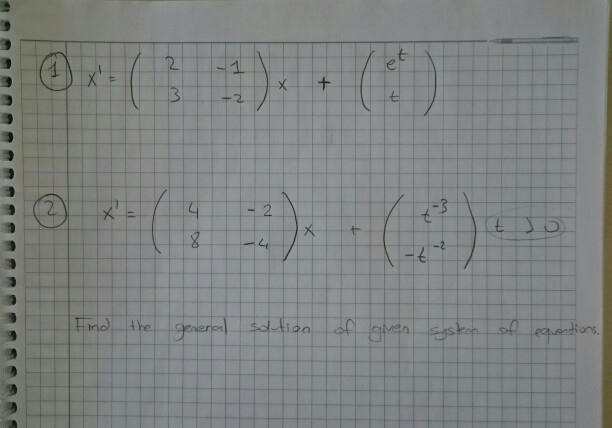 ① x' = ( 2 -1 ; 3 -2 ) x + ( e^t ; t )
② x' = ( 4 -2 ; 8 -4 ) x + ( t^-3 ; -t^-2 ) t > 0
Find the general solution of given system of equations.